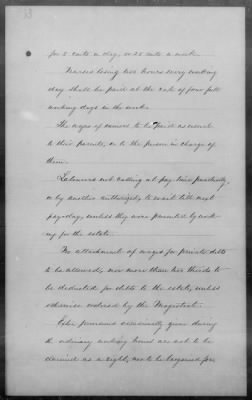 33
for 5 cents a day, or 25 cents a week.
Nurses losing ten hours every working
day shall be paid at the rate of four full
working days in the week.
The wages of minors to be paid as usual
to their parents, or to the person in charge of
them.
Labourers not calling at pay time punctually,
or by another authorized, to wait till next
payday, unless they were prevented by work-
ing for the estate.
No attachment of wages for private debts
to be allowed, nor more than two thirds to
be deducted for debts to the estate, unless
otherwise ordered by the Magistrate.
Extra provisions occasionally given during
the ordinary working hours are not to be
claimed as a right, nor to be bargained for.